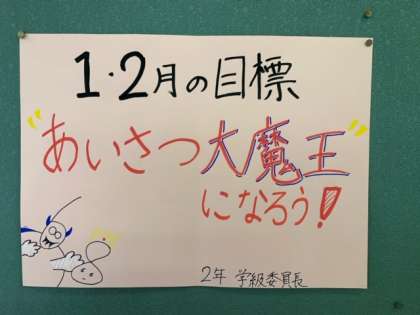 1・2月の目標
"あいさつ大魔王"
になろう!
2年 学級委員長